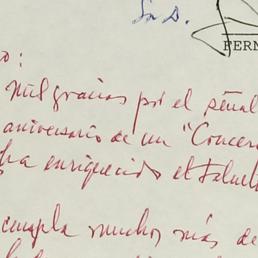 Sn D.
FERN
o:
Mil gracias por el señal
aniversario de un "Concer
ha enriquecido el
cumpla muchos más de